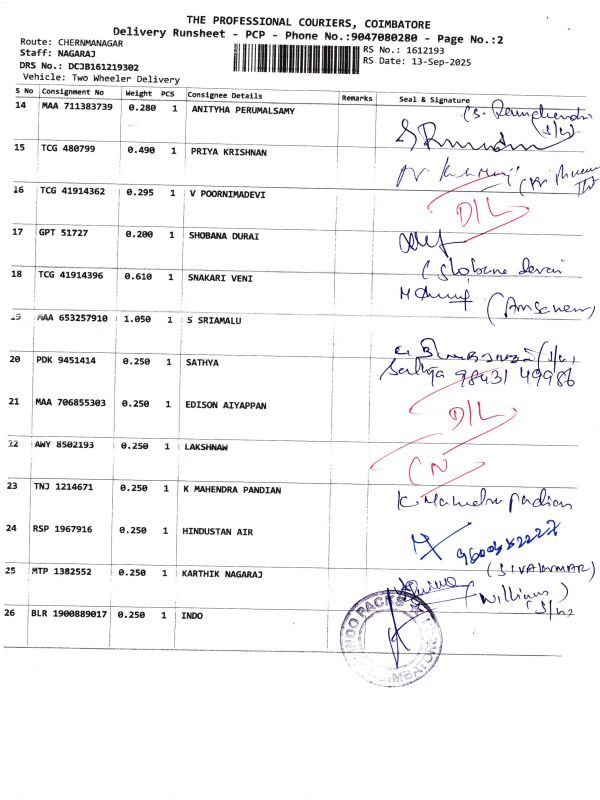 THE PROFESSIONAL COURIERS, COIMBATORE
Delivery Runsheet - PCP - Phone No.:9047080280 - Page No.:2
Route: CHERNMANAGAR
Staff: NAGARAJ
DRS No.: DCJB161219302
Vehicle: Two Wheeler Delivery
RS No.: 1612193
RS Date: 13-Sep-2025
S No Consignment No Weight PCS Consignee Details Remarks Seal & Signature
14 MAA 711383739 0.280 1 ANITYHA PERUMALSAMY
15 TCG 480799 0.490 1 PRIYA KRISHNAN
16 TCG 41914362 0.295 1 V POORNIMADEVI D/L
17 GPT 51727 0.200 1 SHOBANA DURAI
18 TCG 41914396 0.610 1 SNAKARI VENI
19 MAA 653257910 1.050 1 S SRIAMALU
20 PDK 9451414 0.250 1 SATHYA Sathya 98431 49986
21 MAA 706855303 0.250 1 EDISON AIYAPPAN D/L
22 AWY 8502193 0.250 1 LAKSHNAW CN
23 TNJ 1214671 0.250 1 K MAHENDRA PANDIAN K. Mahendra Pandian
24 RSP 1967916 0.250 1 HINDUSTAN AIR
(SIVAKUMAR)
25 MTP 1382552 0.250 1 KARTHIK NAGARAJ
(Williams)
26 BLR 1900889017 0.250 1 INDO